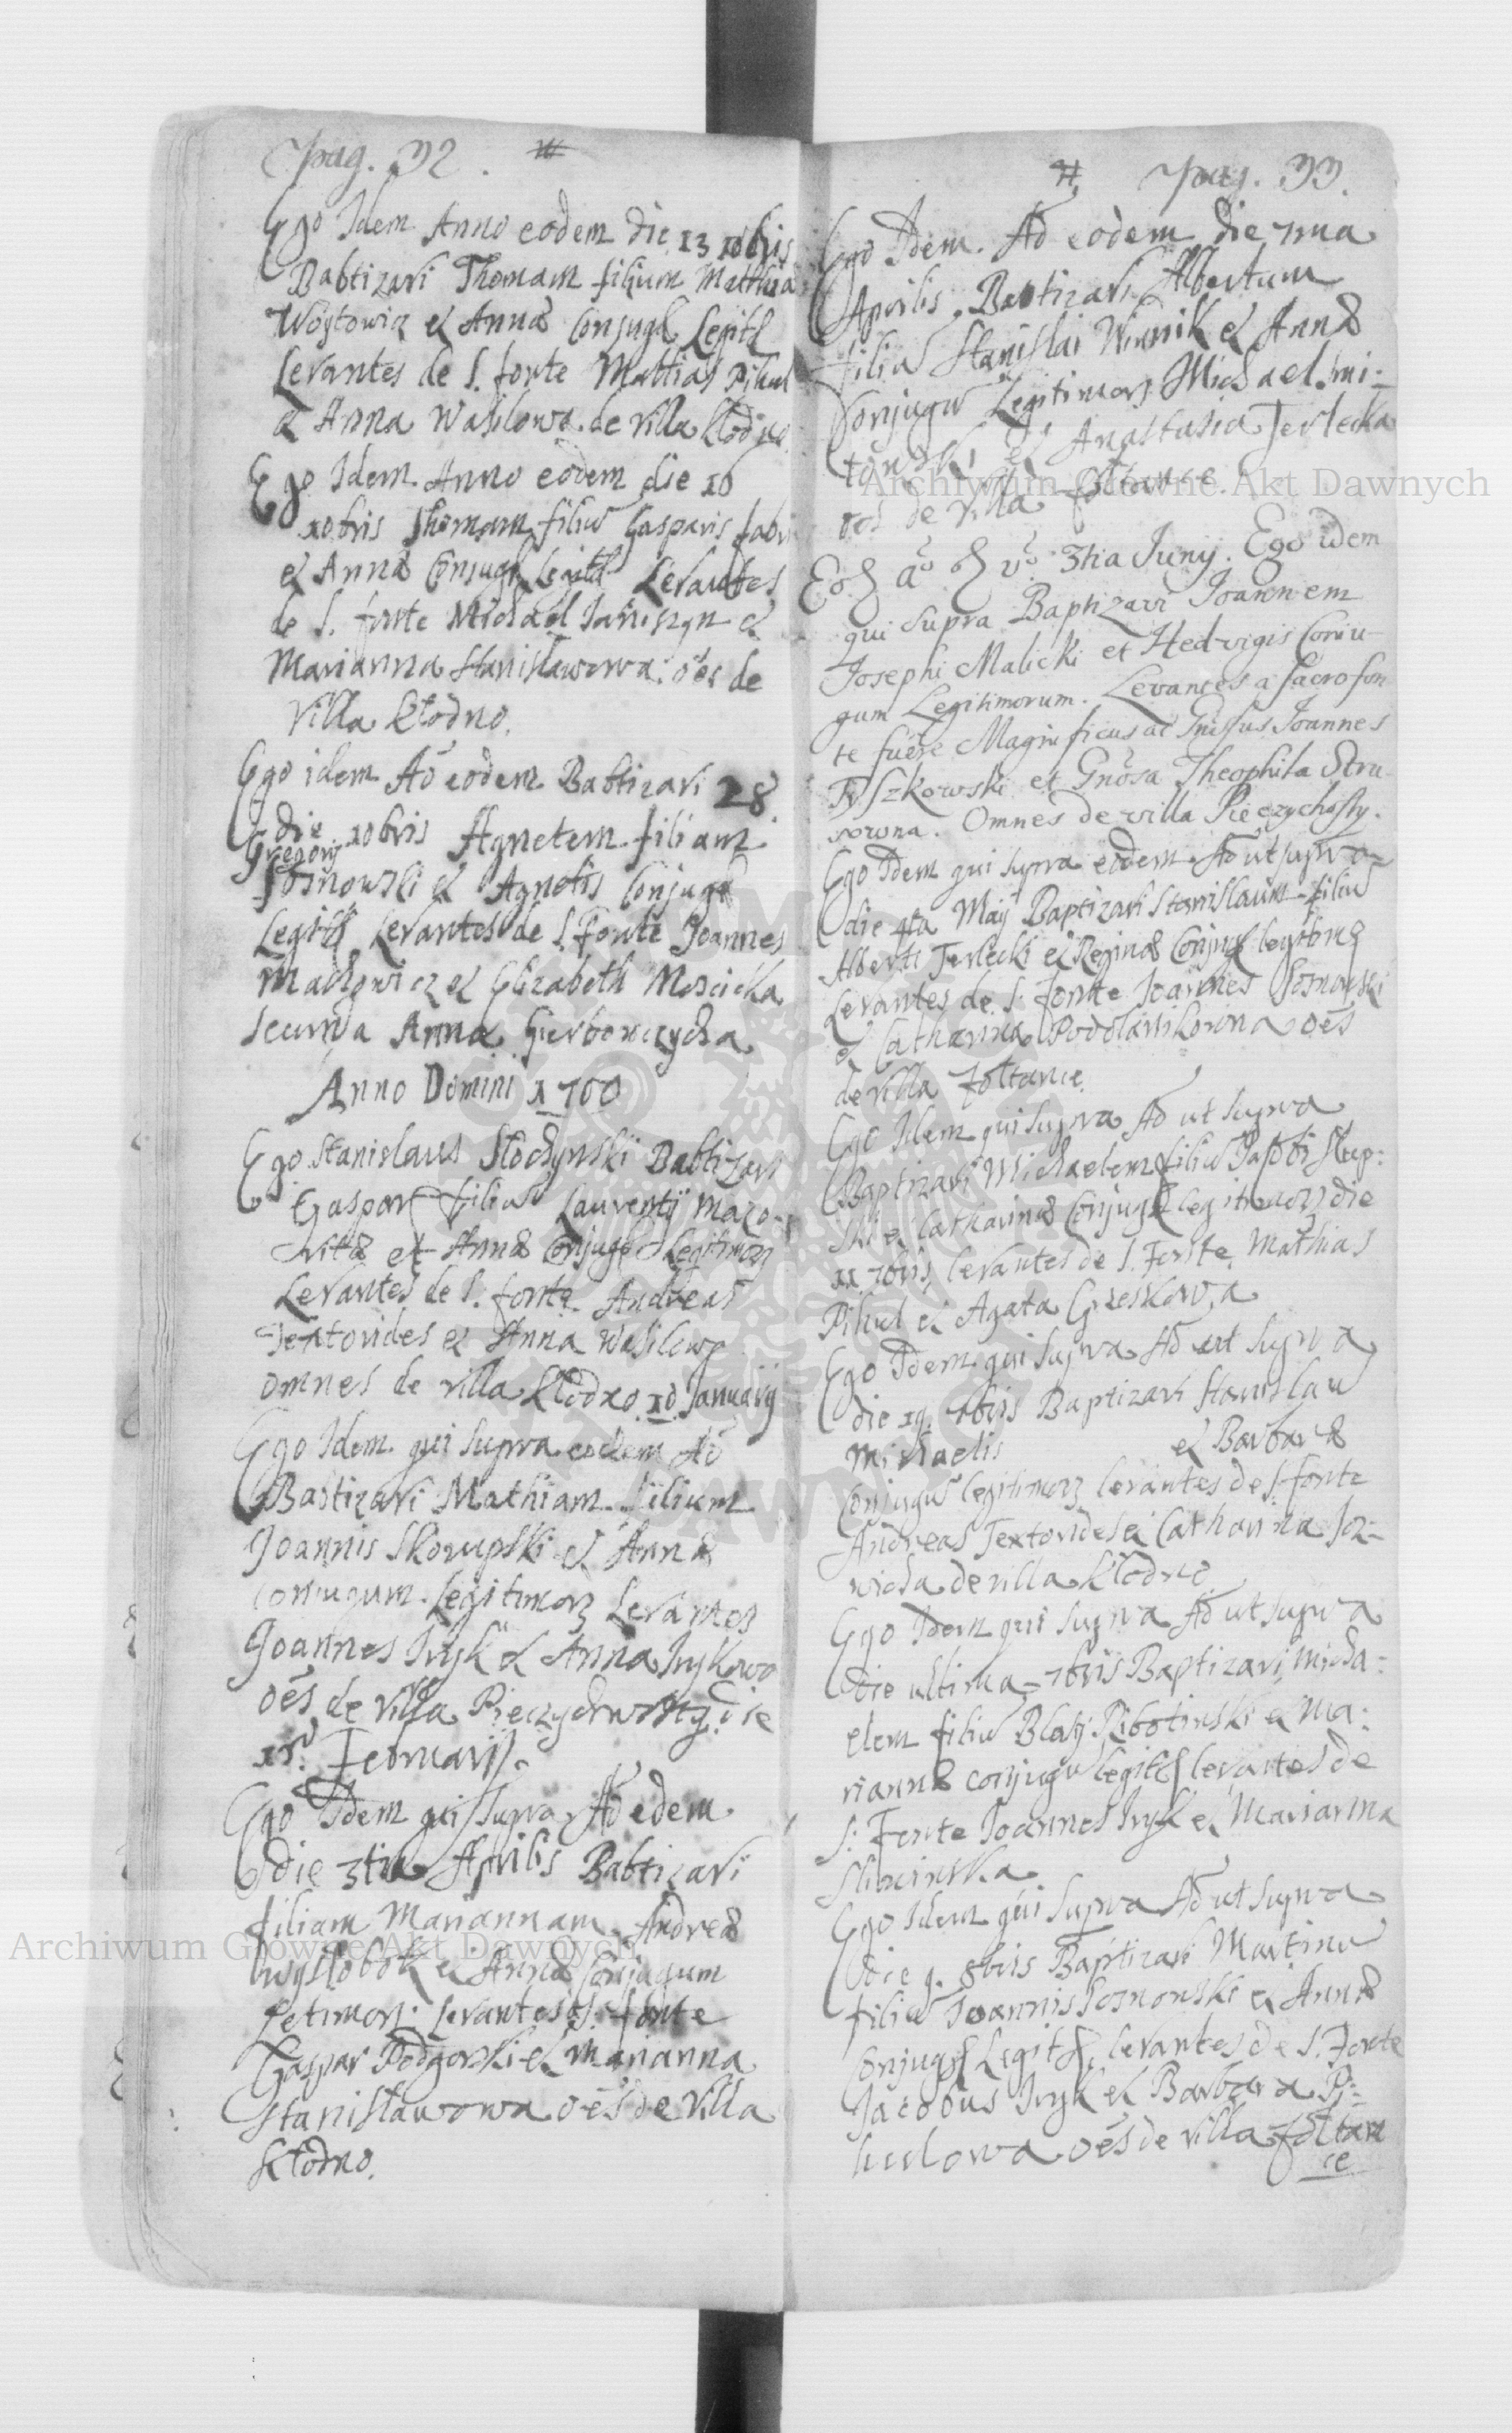 pag. 32.
Ego Idem Anno eodem die 13 10bris
Babtizavi Thomam filium Matthiæ
Woytowicz et Annæ Conjug Legit
Levantes de S. fonte Mattias Pihul
et Anna Wasilowa de villa Kłodno
Ego Idem Anno eodem die 16
10bris Thomam filiu Gasparis fabri
et Annæ Conjug Legit Levantes
de S. fonte Michael Janiszyn et
Marianna Stanisławowa: oēs de
Villa Kłodno.
Ego idem Aō eodem Babtizavi 28
die 10bris Agnetem filiam
Gregorij
Sosnowski et Agnetis Conjug
Legit Levantes de S. Fonte Joannes
Machowicz et Elizabeth Moscicka
secunda Anna Gierborczycha
Anno Domini 1700
Ego Stanislaus Słochynski Babtizavi
Gaspar filiu Laurentij Mazo-
vitæ et Annæ Conjugu Legitimorz
Levantes de S. fonte Andreas
Textorides et Anna Wasilowa
omnes de villa Kłodno 10 Januarij
Ego Idem qui Supra eodem Aō
Babtizavi Mathiam filium
Joannis Skorupski et Annæ
Conjugum Legitimorz Levantes
Joannes Iryk et Anna Irykowa
oēs de villa Pieczychwosty die
15. Februarij.
Ego Idem qui Supra Aō edem
die 3tia Aprilis Babtizavi
filiam Mariannam Andreæ
Wysłobok et Annæ Conjugum
Letimorz levantes S. fonte
Gaspar Podgorski et Marianna
Stanisławowa oēs de Villa
Kłodno.
pag. 33.
Ego Idem Aō eodem die 7ma
Aprilis Babtizavi Albertum
filiu Stanislai Winnik et Annæ
Conjugu Legitimorz Michael Smi-
et Anastasia Terlecka
oēs de villa Żołtance.
Eod aō 3tia Junij. Ego idem
qui supra Baptizavi Joannem
Josephi Malicki et Hedvigis Coniu-
gum Legitimorum. Levantes a sacro fon-
te fuere Magnificus ac Joannes
Tyszkowski et Gnosa Theophila Stru-
sowna. Omnes de villa Pieczychosty.
Ego Idem qui supra eodem Aō ut supra
die 4ta Maij Baptizavi Stanislaum filiu
Alberti Terlecki et Reginæ Conjug legitim
Levantes de S. fonte Joannes Sosnowski
et Catharina Podolanikowna oēs
de villa Żołtance.
Ego Idem qui Supra Aō ut Supra
Baptizavi Michaelem filiu Jacobi Skup-
ski et Catharinæ Conjug legitimorz die
11 7bris levantes de S. Fonte Mathias
Pihul et Agata Greskowa
Ego Idem qui Supra Aō ut Supra
die 19. 7bris Baptizavi Stanislau
Michaelis et Barbaræ
Conjugu legitimorz levantes de S. fonte
Andreas Textorides et Catharina Joz-
wicha de villa Kłodno
Ego Idem qui Supra Aō ut Supra
die ultima 7bris Baptizavi Micha-
elem filiu Blasij Ribotinski et Ma-
riannæ conjugu legit levantes de
S. Fonte Joannes Iryk et Marianna
Sliwinska
Ego Idem qui Supra Aō ut Supra
die 9. 8bris Baptizavi Martinu
filiu Joannis Sosnowski et Annæ
Conjug Legit levantes de S. Fonte
Jacobus Iryk et Barbara Pi-
hulowa oēs de villa Żołtan
ce
Archiwum Główne Akt Dawnych
Archiwum Główne Akt Dawnych